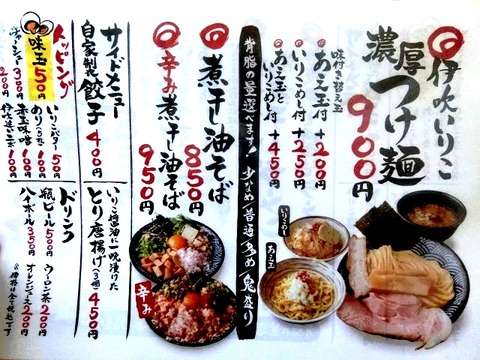 伊吹いりこ
濃厚つけ麺
900円
味付き替え玉
あえ玉付 +200円
いりこめし付 +250円
あえ玉と
いりこめし付 +450円
いりこめし
あえ玉
背脂の量選べます! 少なめ/普通/多め/鬼盛り
煮干し油そば
850円
辛み煮干し油そば
950円
辛み
サイドメニュー
自家製餃子 400円
いりこ醤油に一晩漬けた
とり唐揚げ(3個) 450円
トッピング
味玉 50円
チャーシュー 300円
200円
いりこバター 50円
のり(5枚) 100円
赤玉味噌 100円
100円
ドリンク
瓶ビール 500円
ハイボール 350円
ウーロン茶 200円
オレンジジュース 200円
※価格は全て税込です